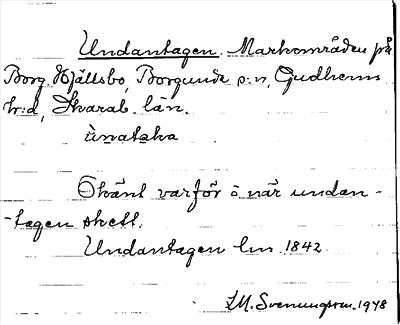 Undantagen. Markområden på
Borg Hjällsbo, Borgunda s:n, Gudhems
h:d, Skarab. län.
ùnatska
Okänt varför o när undan-
-tagen skett.
Undantagen lm. 1842
J.M. Svenungson. 1948